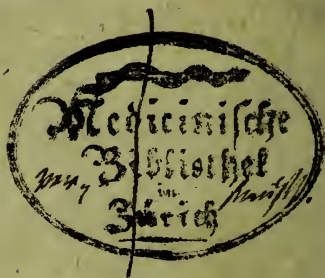 Medicinische
Bibliothek
in
Zürich